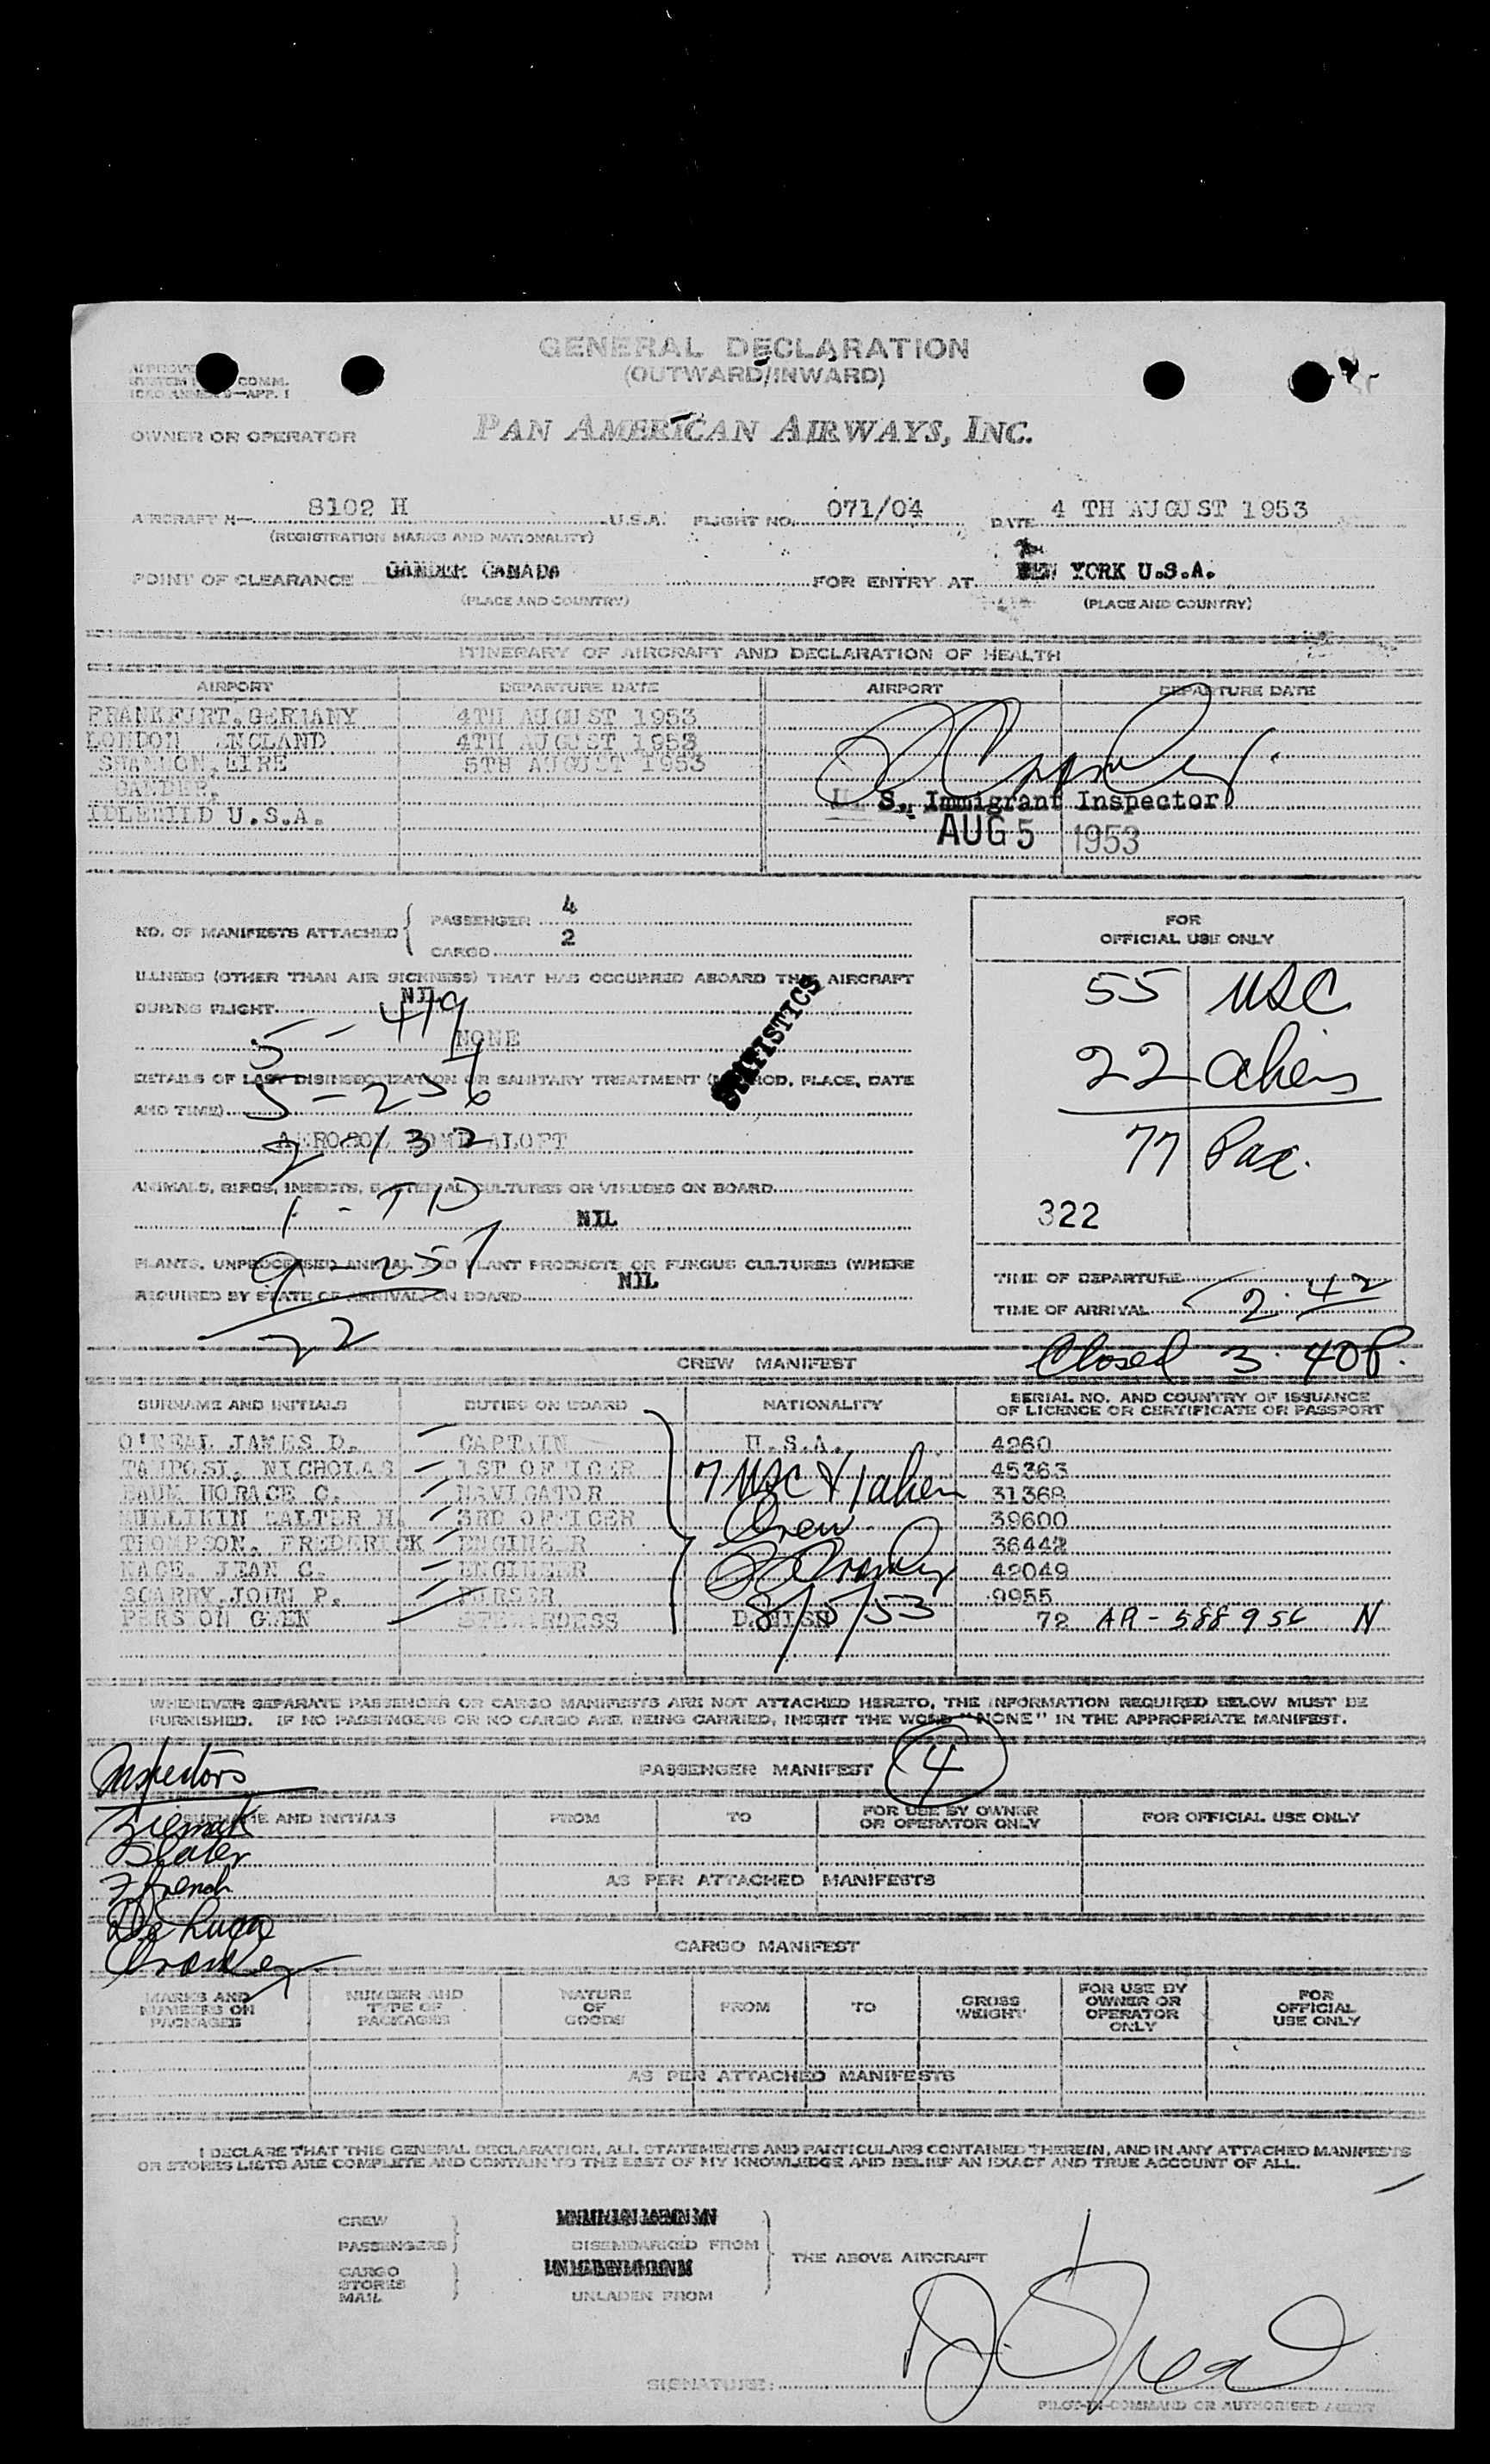 GENERAL DECLARATION
(OUTWARD/INWARD)
COMM.
—APP. I
OWNER OR OPERATOR PAN AMERICAN AIRWAYS, INC.
AIRCRAFT N— 8102 H U.S.A. FLIGHT NO. 071/04 DATE 4 TH AUGUST 1953
(REGISTRATION MARKS AND NATIONALITY)
POINT OF CLEARANCE GANDER CANADA FOR ENTRY AT NEW YORK U.S.A.
(PLACE AND COUNTRY) (PLACE AND COUNTRY)
ITINERARY OF AIRCRAFT AND DECLARATION OF HEALTH
AIRPORT DEPARTURE DATE AIRPORT DEPARTURE DATE
FRANKFURT,GERMANY 4TH AUGUST 1953
LONDON ENGLAND 4TH AUGUST 1953
SHANNON,EIRE 5TH AUGUST 1953
GANDER,
IDLEWILD U.S.A.
U. S. Immigrant Inspector
AUG 5 1953
NO. OF MANIFESTS ATTACHED { PASSENGER 4
CARGO 2
ILLNESS (OTHER THAN AIR SICKNESS) THAT HAS OCCURRED ABOARD THE AIRCRAFT
DURING FLIGHT NIL
5 - 419
NONE
STATISTICS
DETAILS OF LAST DISINSECTIZATION OR SANITARY TREATMENT (METHOD, PLACE, DATE
AND TIME)
5 - 256
AEROSOL BOMB ALOFT
2 - 132
ANIMALS, BIRDS, INSECTS, BACTERIAL CULTURES OR VIRUSES ON BOARD
1 - TPD
NIL
PLANTS, UNPROCESSED ANIMAL AND PLANT PRODUCTS OR FUNGUS CULTURES (WHERE
9 - 257
REQUIRED BY STATE OF ARRIVAL) ON BOARD NIL
22
FOR
OFFICIAL USE ONLY
55 USC
22 Aliens
77 Pax.
322
TIME OF DEPARTURE
TIME OF ARRIVAL 2:42
Closed 3:40P.
CREW MANIFEST
SURNAME AND INITIALS DUTIES ON BOARD NATIONALITY SERIAL NO. AND COUNTRY OF ISSUANCE
OF LICENCE OR CERTIFICATE OR PASSPORT
O'NEAL JAMES D. CAPTAIN U.S.A. 4260
TAMPOSI, NICHOLAS 1ST OFFICER 45363
BAUM HORACE C. NAVIGATOR 31368
MULLIKIN WALTER H. 3RD OFFICER 39600
THOMPSON, FREDERICK ENGINEER 36442
NACE, JEAN C. ENGINEER 42049
SCARRY,JOHN P. PURSER 9955
PERSSON GWEN STEWARDESS DANISH 72 AR - 588956 N
7 USC & 1 alien
Crew
8/5/53
WHENEVER SEPARATE PASSENGER OR CARGO MANIFESTS ARE NOT ATTACHED HERETO, THE INFORMATION REQUIRED BELOW MUST BE
FURNISHED. IF NO PASSENGERS OR NO CARGO ARE BEING CARRIED, INSERT THE WORD "NONE" IN THE APPROPRIATE MANIFEST.
Inspectors
PASSENGER MANIFEST 4
SURNAME AND INITIALS FROM TO FOR USE BY OWNER
OR OPERATOR ONLY FOR OFFICIAL USE ONLY
Slater
French
De Luca
Crowley
AS PER ATTACHED MANIFESTS
CARGO MANIFEST
MARKS AND
NUMBERS ON
PACKAGES
NUMBER AND
TYPE OF
PACKAGES
NATURE
OF
GOODS
FROM
TO
GROSS
WEIGHT
FOR USE BY
OWNER OR
OPERATOR
ONLY
FOR
OFFICIAL
USE ONLY
AS PER ATTACHED MANIFESTS
I DECLARE THAT THIS GENERAL DECLARATION, ALL STATEMENTS AND PARTICULARS CONTAINED THEREIN, AND IN ANY ATTACHED MANIFESTS
OR STORES LISTS ARE COMPLETE AND CONTAIN TO THE BEST OF MY KNOWLEDGE AND BELIEF AN EXACT AND TRUE ACCOUNT OF ALL.
CREW
PASSENGERS
DISEMBARKED FROM
THE ABOVE AIRCRAFT
CARGO
STORES
MAIL
UNLADEN FROM
SIGNATURE:
PILOT-IN-COMMAND OR AUTHORISED AGENT